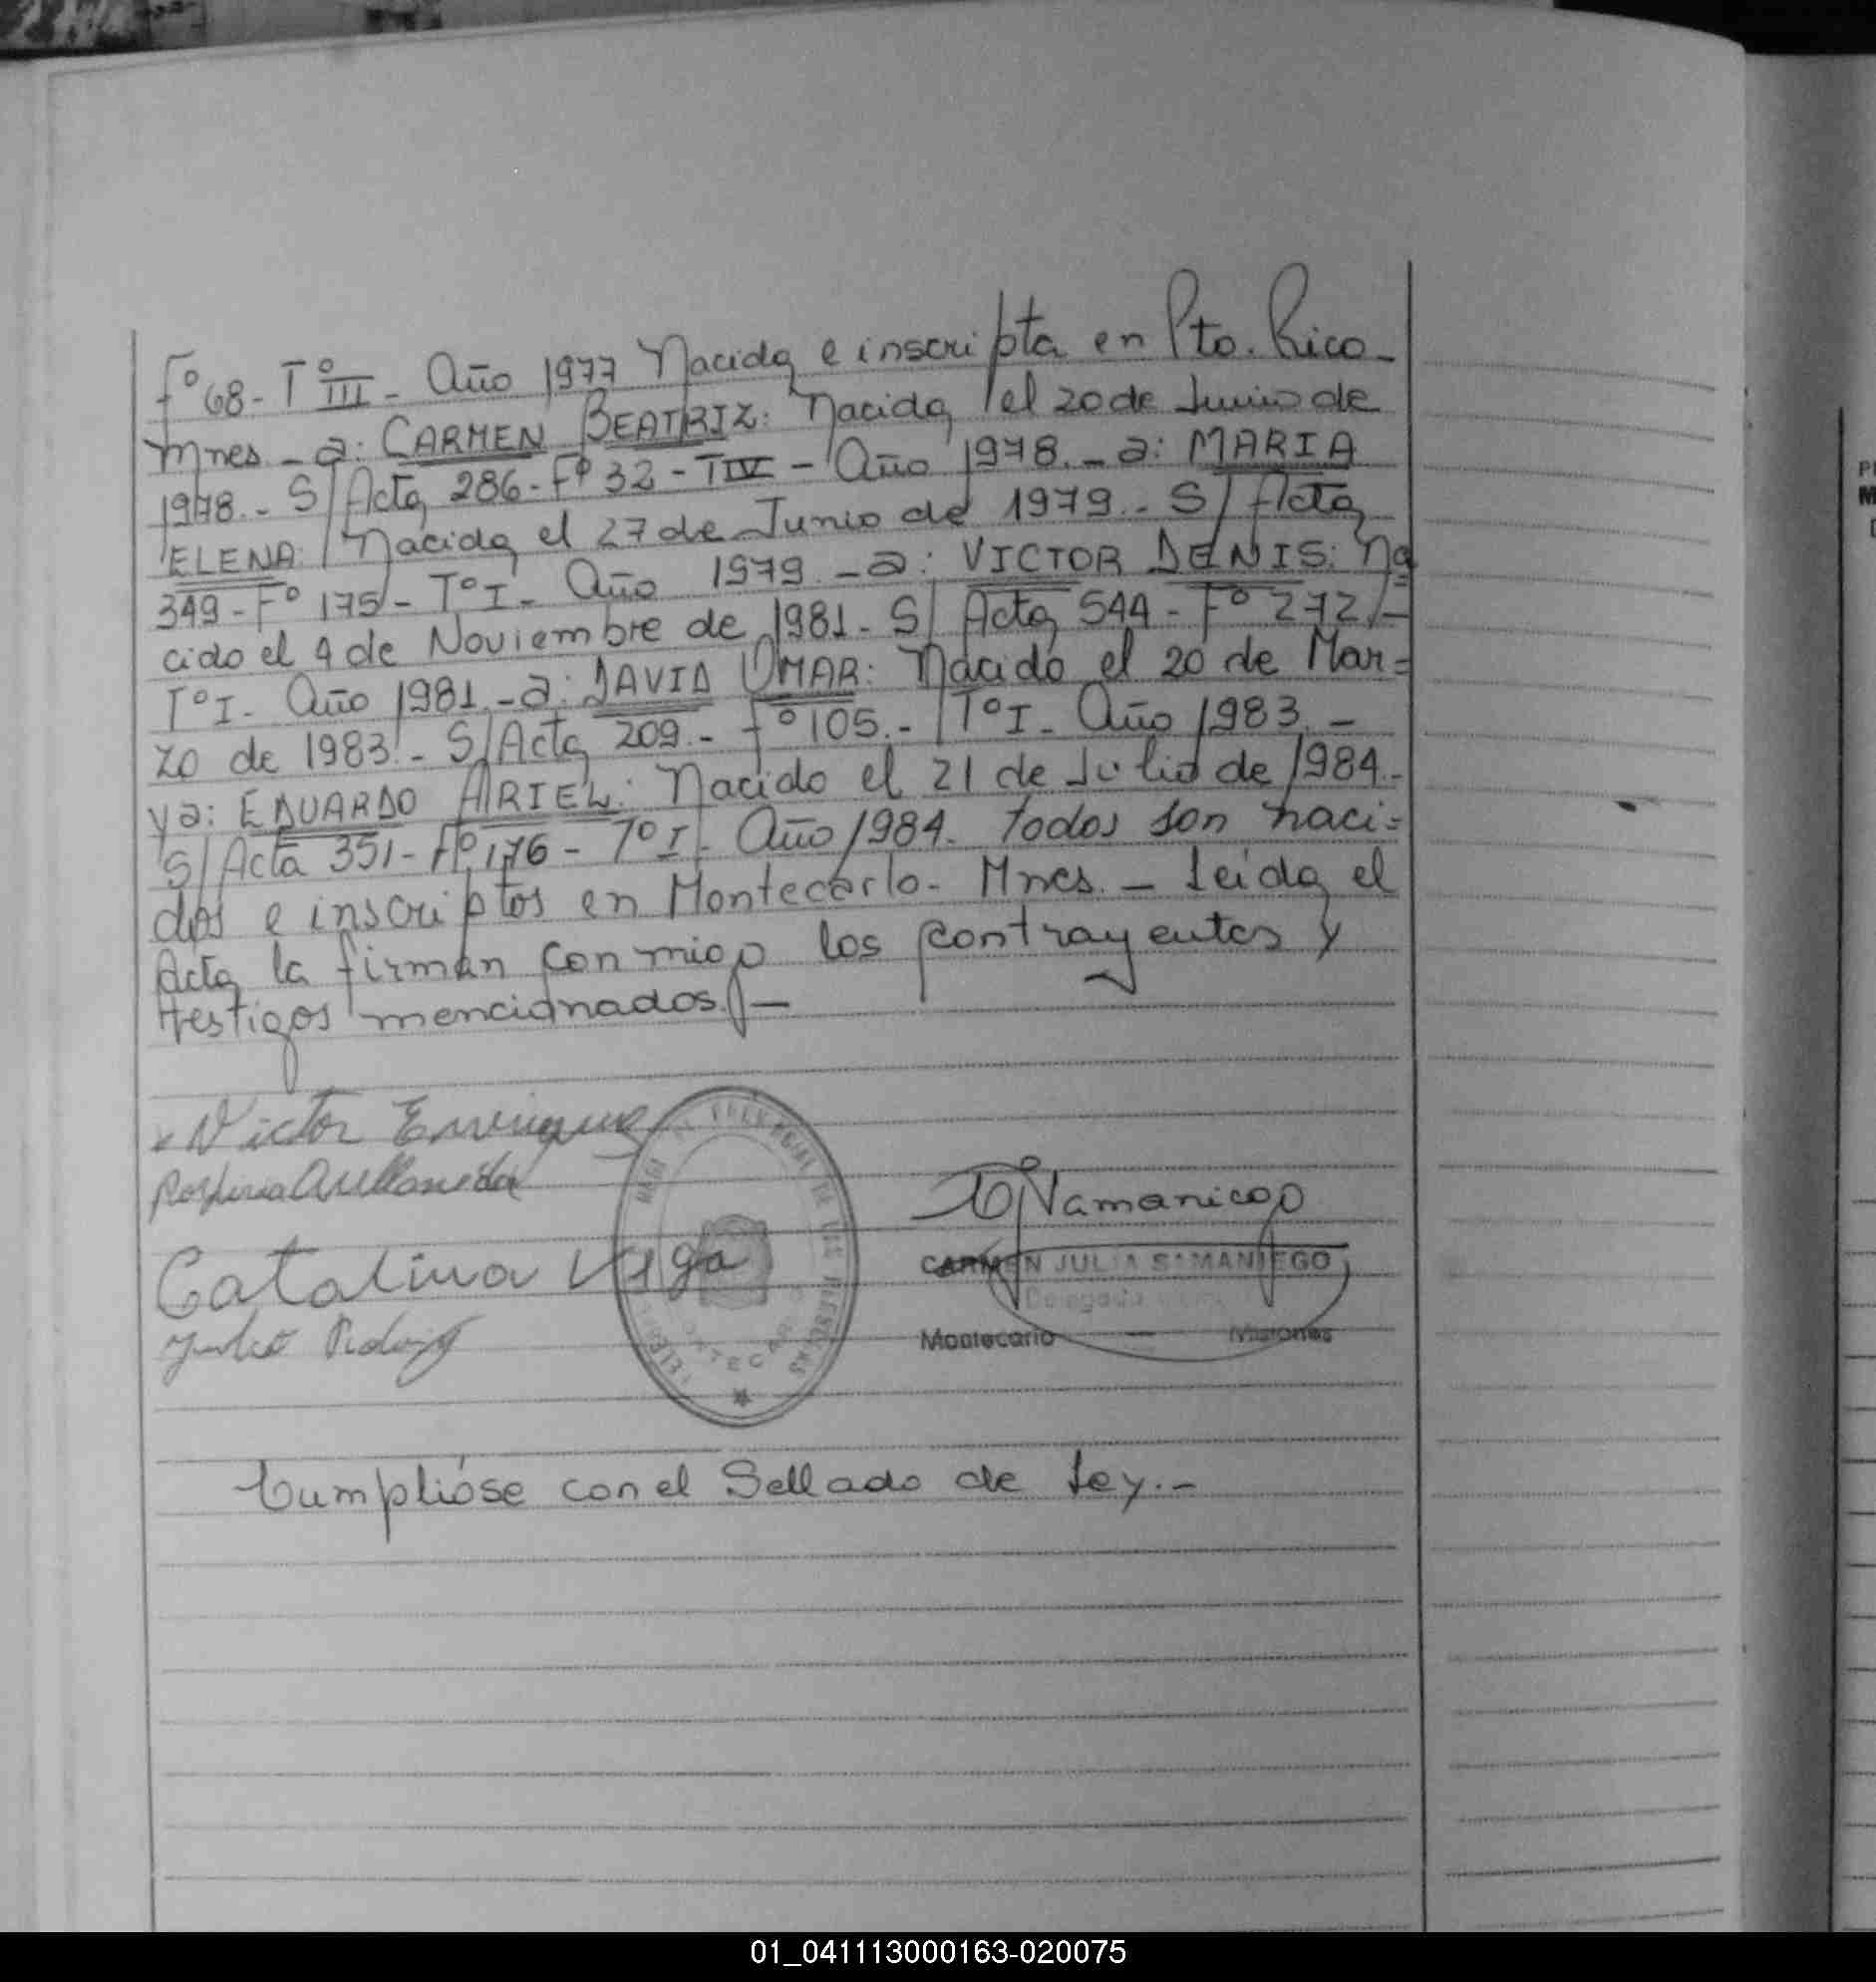 Fº 68- Tº III- Año 1977 Nacida e inscripta en Pto. Rico-
Mnes - a: CARMEN BEATRIZ: Nacida el 20 de Junio de
1978.- S/Acta 286- Fº 32 - T IV - Año 1978.- a: MARIA
ELENA: Nacida el 27 de Junio de 1979.- S/ Acta
349- Fº 175- Tº I- Año 1979.- a: VICTOR DENIS: Na=
cido el 4 de Noviembre de 1981- S/ Acta 544- Fº 272/-
Tº I- Año 1981.- a: DAVID OMAR: Nacido el 20 de Mar=
zo de 1983.- S/Acta 209.- Fº 105.- Tº I- Año 1983.-
y a: EDUARDO ARIEL: Nacido el 21 de Julio de 1984.-
S/ Acta 351- Fº 176- Tº I- Año 1984. todos son naci=
dos e inscriptos en Montecarlo- Mnes.- Leida el
Acta la firman conmigo los contrayentes y
testigos mencionados.-
Victor Enrique
Catalina Vega
CARMEN JULIA SAMANIEGO
Delegada
Montecarlo - Misiones
Cumplióse con el Sellado de Ley.-
01_041113000163-020075